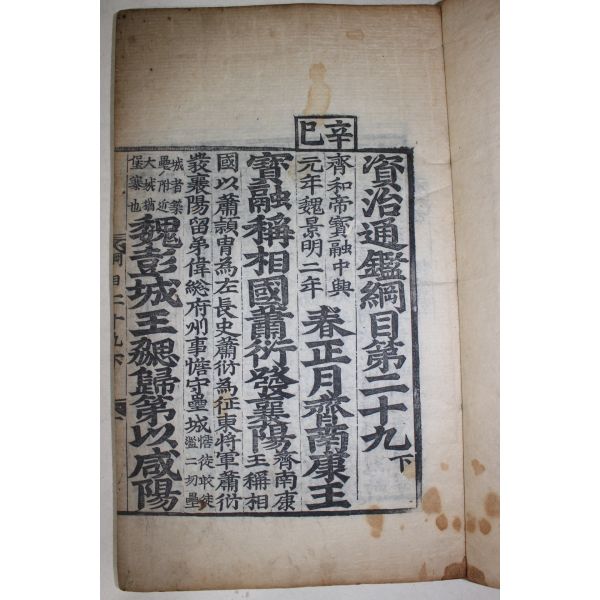 辛巳
資治通鑑綱目第二十九下
齊和帝寶融中興
元年魏景明二年
春正月齊南康王
寶融稱相國蕭衍發襄陽
齊南康
王稱相
國以蕭頴冑為左長史蕭衍為征東將軍蕭衍
發襄陽留弟偉緫府州事憺守壘城
憺徒敢徒
濫二切壘
城者築
壘附近
大城猶
堡寨也
魏彭城王勰歸第以咸陽
目二十九下